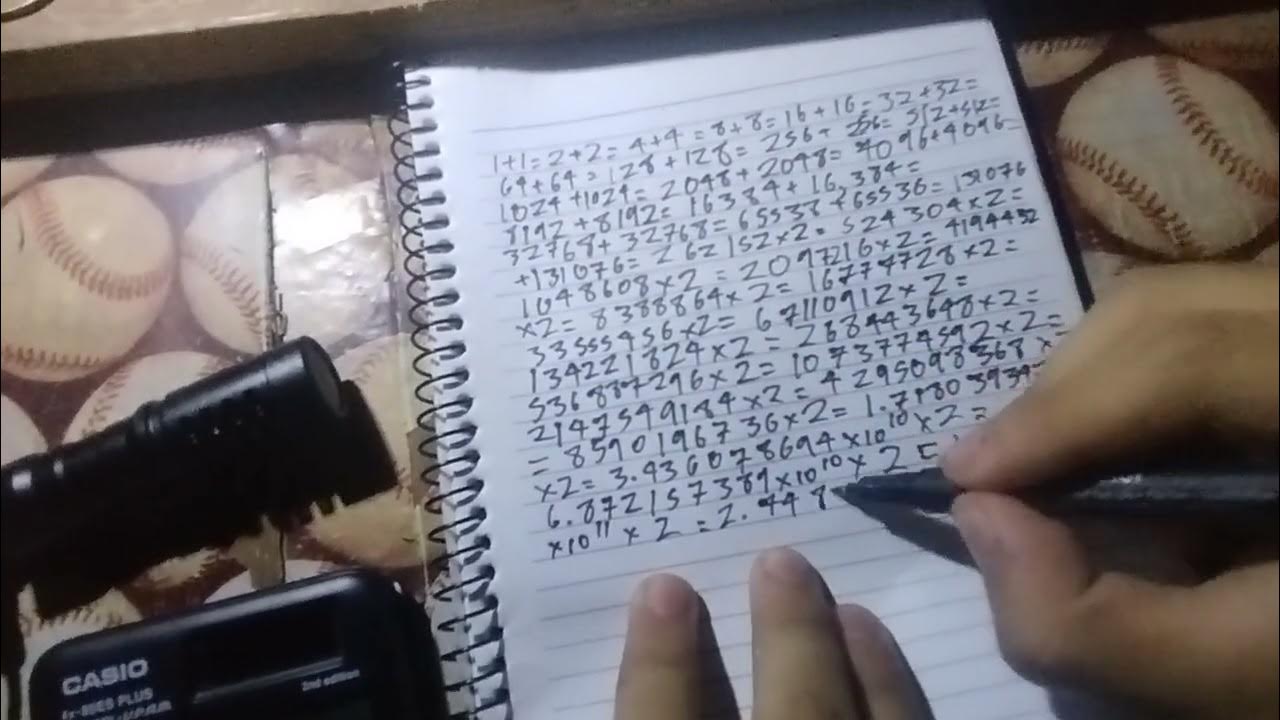 1+1=2+2=4+4=8+8=16+16=32+32=
64+64=128+128=256+256=512+512=
1024+1024=2048+2048=4096+4096=
8192+8192=16384+16,384=
32768+32768=65538+65536=131076
+131076=262152×2=524304×2=
1048608×2=2097216×2=4194432
×2=8388864×2=16777728×2=
33555456×2=67110912×2=
134221824×2=268443648×2=
536887296×2=1073774592×2=
2147549184×2=4295098368×
=8590196736×2=1.718039347
×2=3.436078694×10¹⁰×2=
6.872157389×10¹⁰×2
×10¹¹×2=2.748
CASIO
fx-85ES PLUS
2nd edition